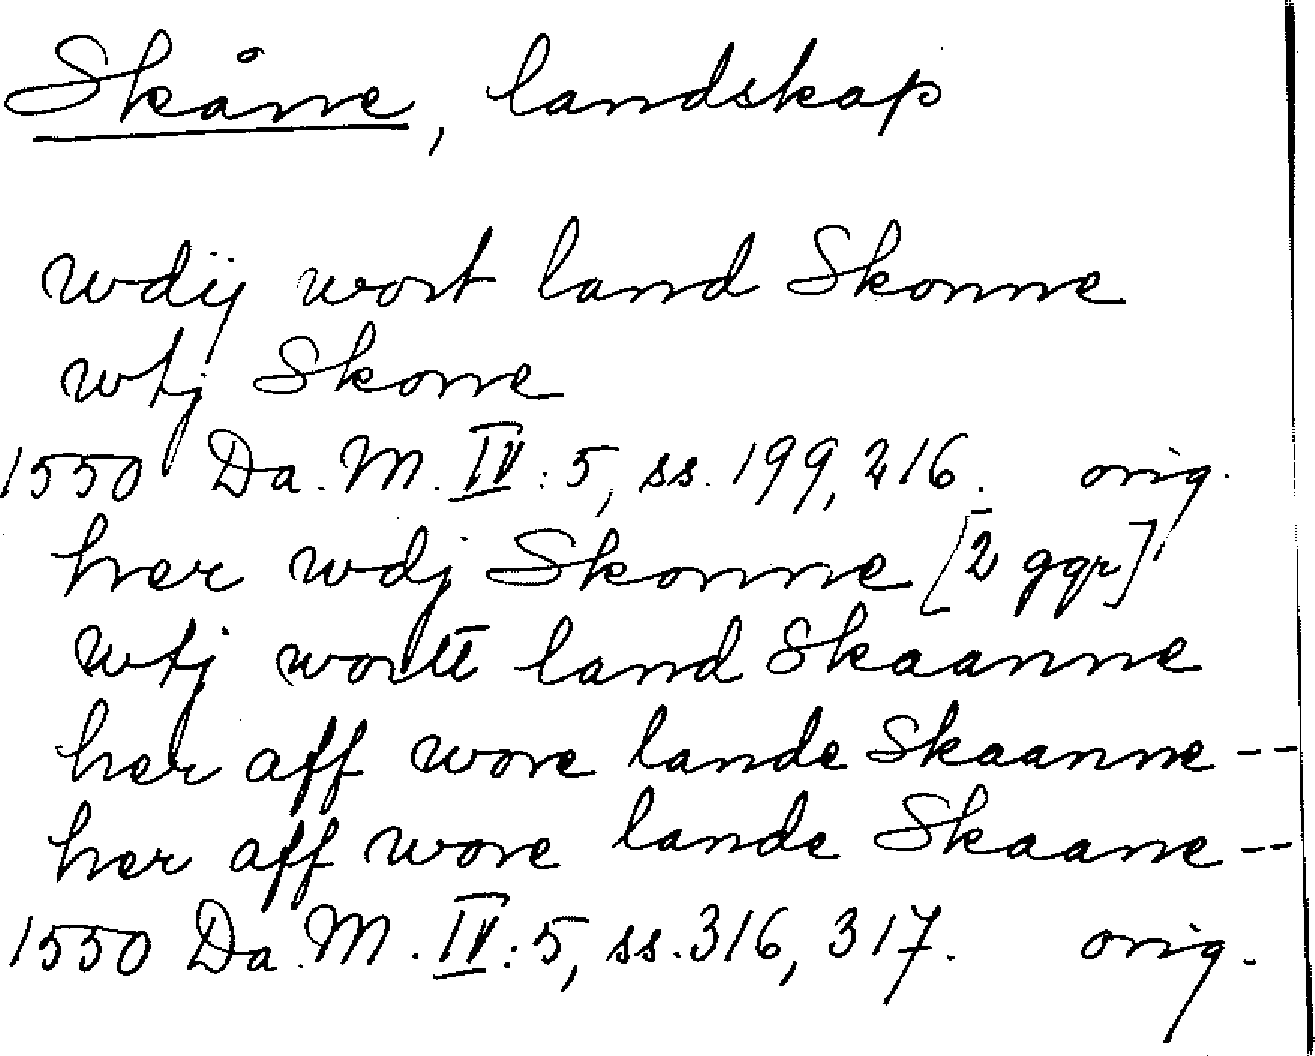 Skåne, landskap
wdij wort land Skonne
wtj Skone
1550 Da. M. IV: 5, ss. 199, 216. orig.
her wdj Skonne [2 ggr]
wtj wortt land Skaanne
her aff wore lande Skaanne --
her aff wore lande Skaane --
1550 Da. M. IV: 5, ss. 316, 317. orig.